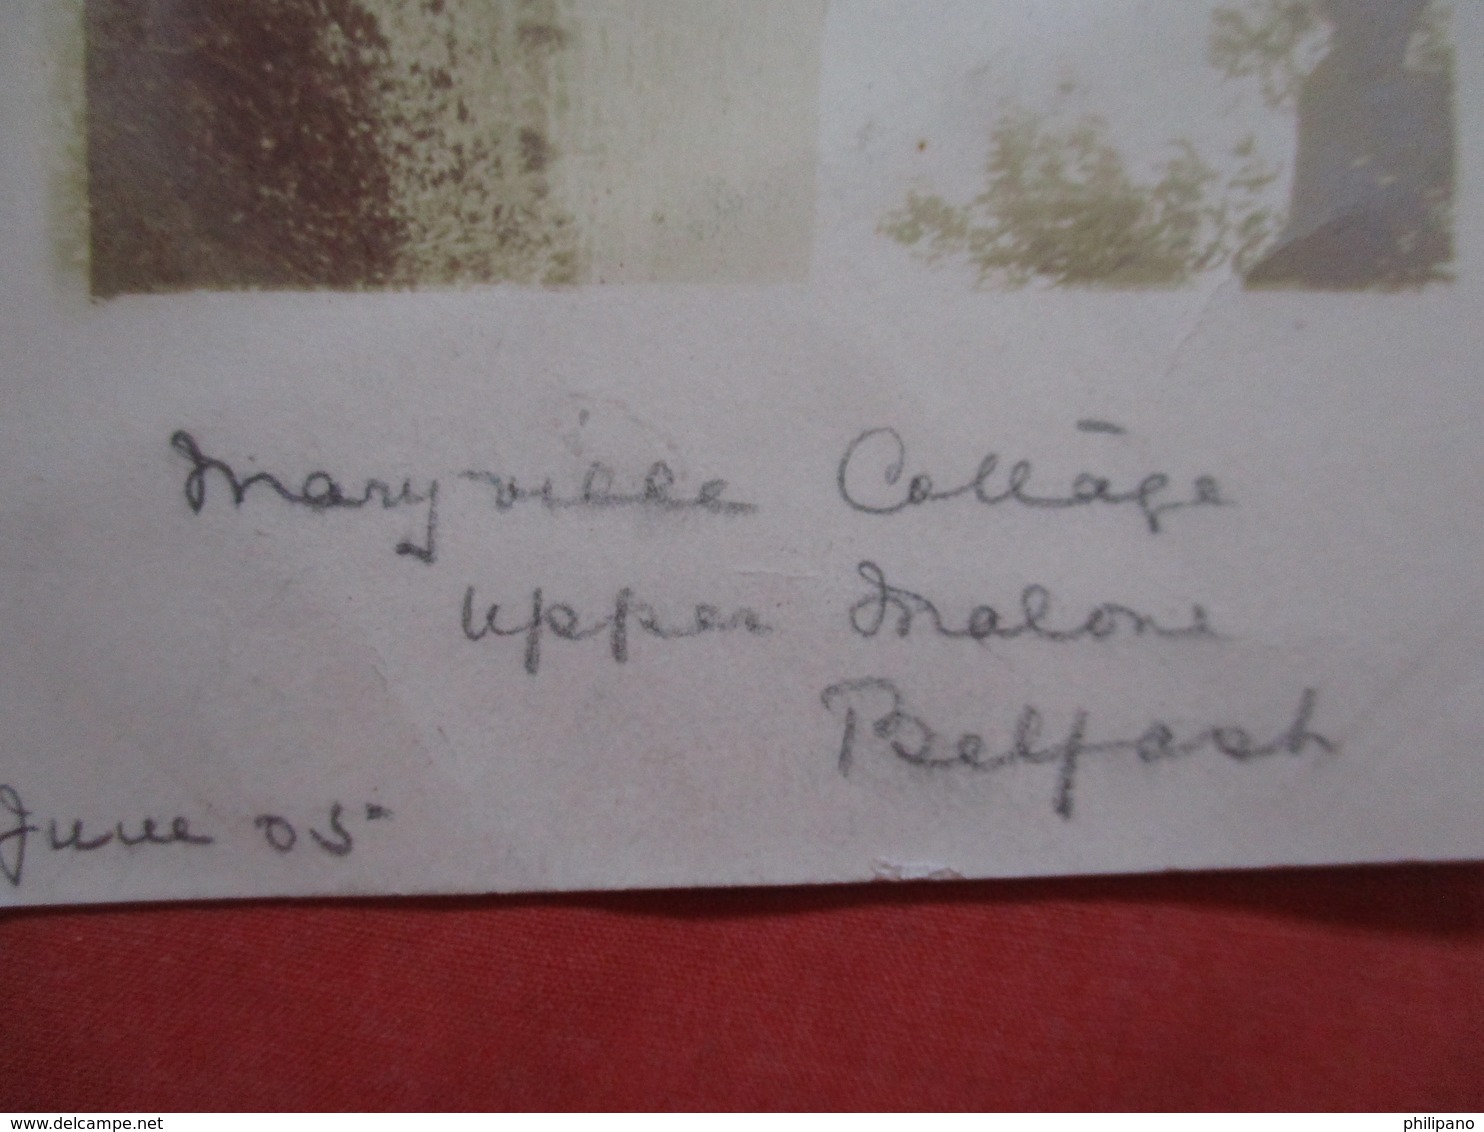 Maryville Cottage
Upper Malone
Belfast
June 05
www.delcampe.net
philipano